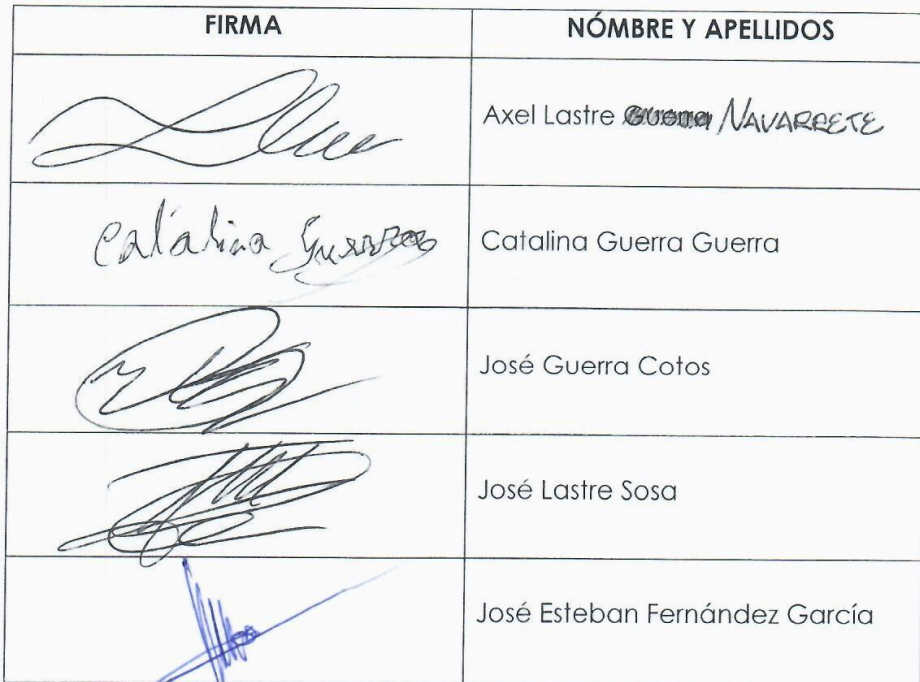 FIRMA
NÓMBRE Y APELLIDOS
Axel Lastre Guerra NAVARRETE
Catalina
Catalina Guerra Guerra
José Guerra Cotos
José Lastre Sosa
José Esteban Fernández García